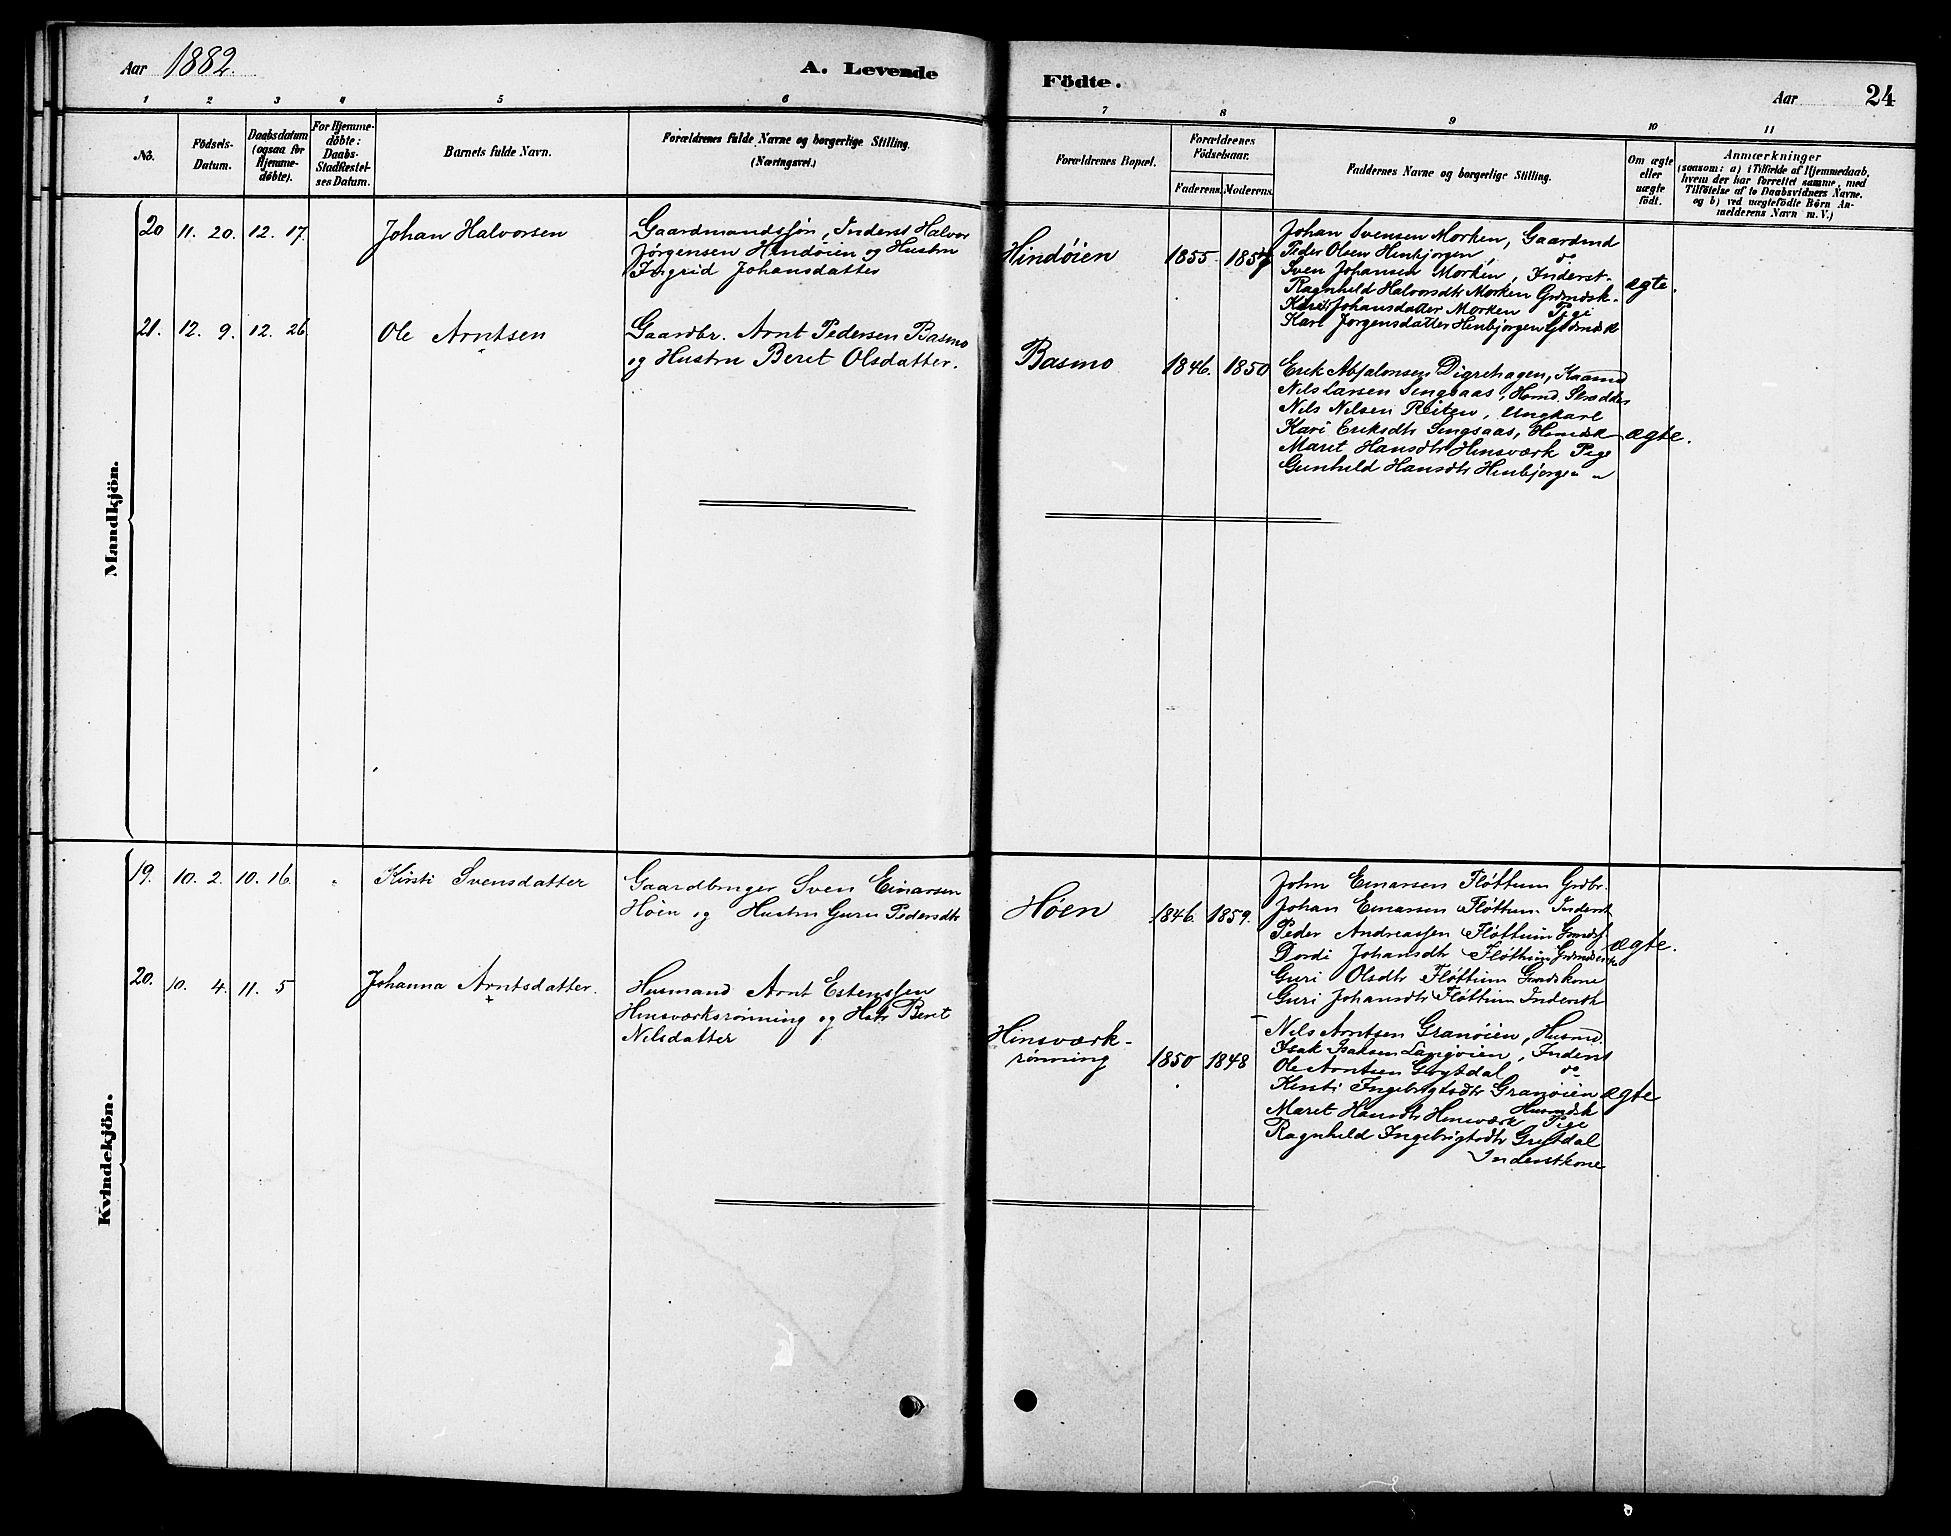 Aar 1882.
A. Levende
Födte.
Aar
24
1 2 3 4 5 6 7 8 9 10 11
No.
Födsels-
Datum.
Daabsdatum
(ogsaa for
Hjemme-
döbte).
For Hjemme-
döbte:
Daabs-
Stadfæstel-
ses Datum.
Barnets fulde Navn.
Forældrenes fulde Navne og borgerlige Stilling.
(Næringsvei.)
Forældrenes Bopæl.
Forældrenes
Födselsaar.
Faderens.
Moderens.
Faddernes Navne og borgerlige Stilling.
Om ægte
eller
uægte
födt.
Anmærkninger
(saasom: a) i Tilfælde af Hjemmedaab,
hvem der har forrettet samme, med
Tilföielse af to Daabsvidners Navne.
og b) ved uægtefödte Börn An-
melderens Navn m. V.)
Mandkjön.
20 11. 20. 12. 17. Johan Halvorsen
Gaardmandssøn, Inderst Halvor
Jørgensen Hindøien og Hustru
Ingrid Johansdatter
Hindøien 1855
Johan Svensen Morken, Gaardmd
Peder Olsen Henbjorgen, do
Sven Johansen Morken, Inderst
Ragnhild Halvorsdtr Morken Grdmdsk.
Kari Johansdatter Morken Pige
Kari Jorgensdatter Henbjorgen Grdmdsk
ægte.
21. 12. 9. 12. 26 Ole Arntsen
Gaardbr. Arnt Pedersen Basmo
og Hustru Beret Olsdatter.
Basmo 1846. 1850
Erik Absalonsen Digrehagen, Kaarmd
Nils Larsen Singsaas, Hmd. Skrædder
Nils Nilsen Reiten, Ungkarl
Kari Eriksdtr Singsaas, Hmdsk
Maret Hansdtr Hinsværk Pige
Gunhild Hansdtr Henbjorgen "
ægte.
Kvindekjön.
19. 10. 2. 10. 16. Kirsti Svensdatter
Gaardbruger Sven Einarsen
Høen og Hustru Guru Pedersdtr
Høen 1846. 1859.
John Einarsen Fløttum Grdbr.
Johan Einarsen Fløttum Inderst
Peder Andreassen Fløttum Grmds.
Dordi Johansdtr Fløttum
Guri Olsdtr Fløttum Grmdskone
Guri Johansdtr Fløttum Inderstk
ægte.
20. 10. 4. 11. 5 Johanna Arntsdatter.
Husmand Arnt Estenssen
Hinsværksrønning og Hstr Beret
Nilsdatter
Hinsværk-
rønning 1850 1848
Nils Arntsen Granøien, Husmd.
Isak Isaksen Langøien, Inderst
Ole Arntsen Grytdal do
Kirsti Ingebrigtsdtr Granøien
Husmdsk
Maret Hansdtr Hinsværk Pige
Ragnhild Ingebrigtsdtr Grytdal
Inderstkone
ægte